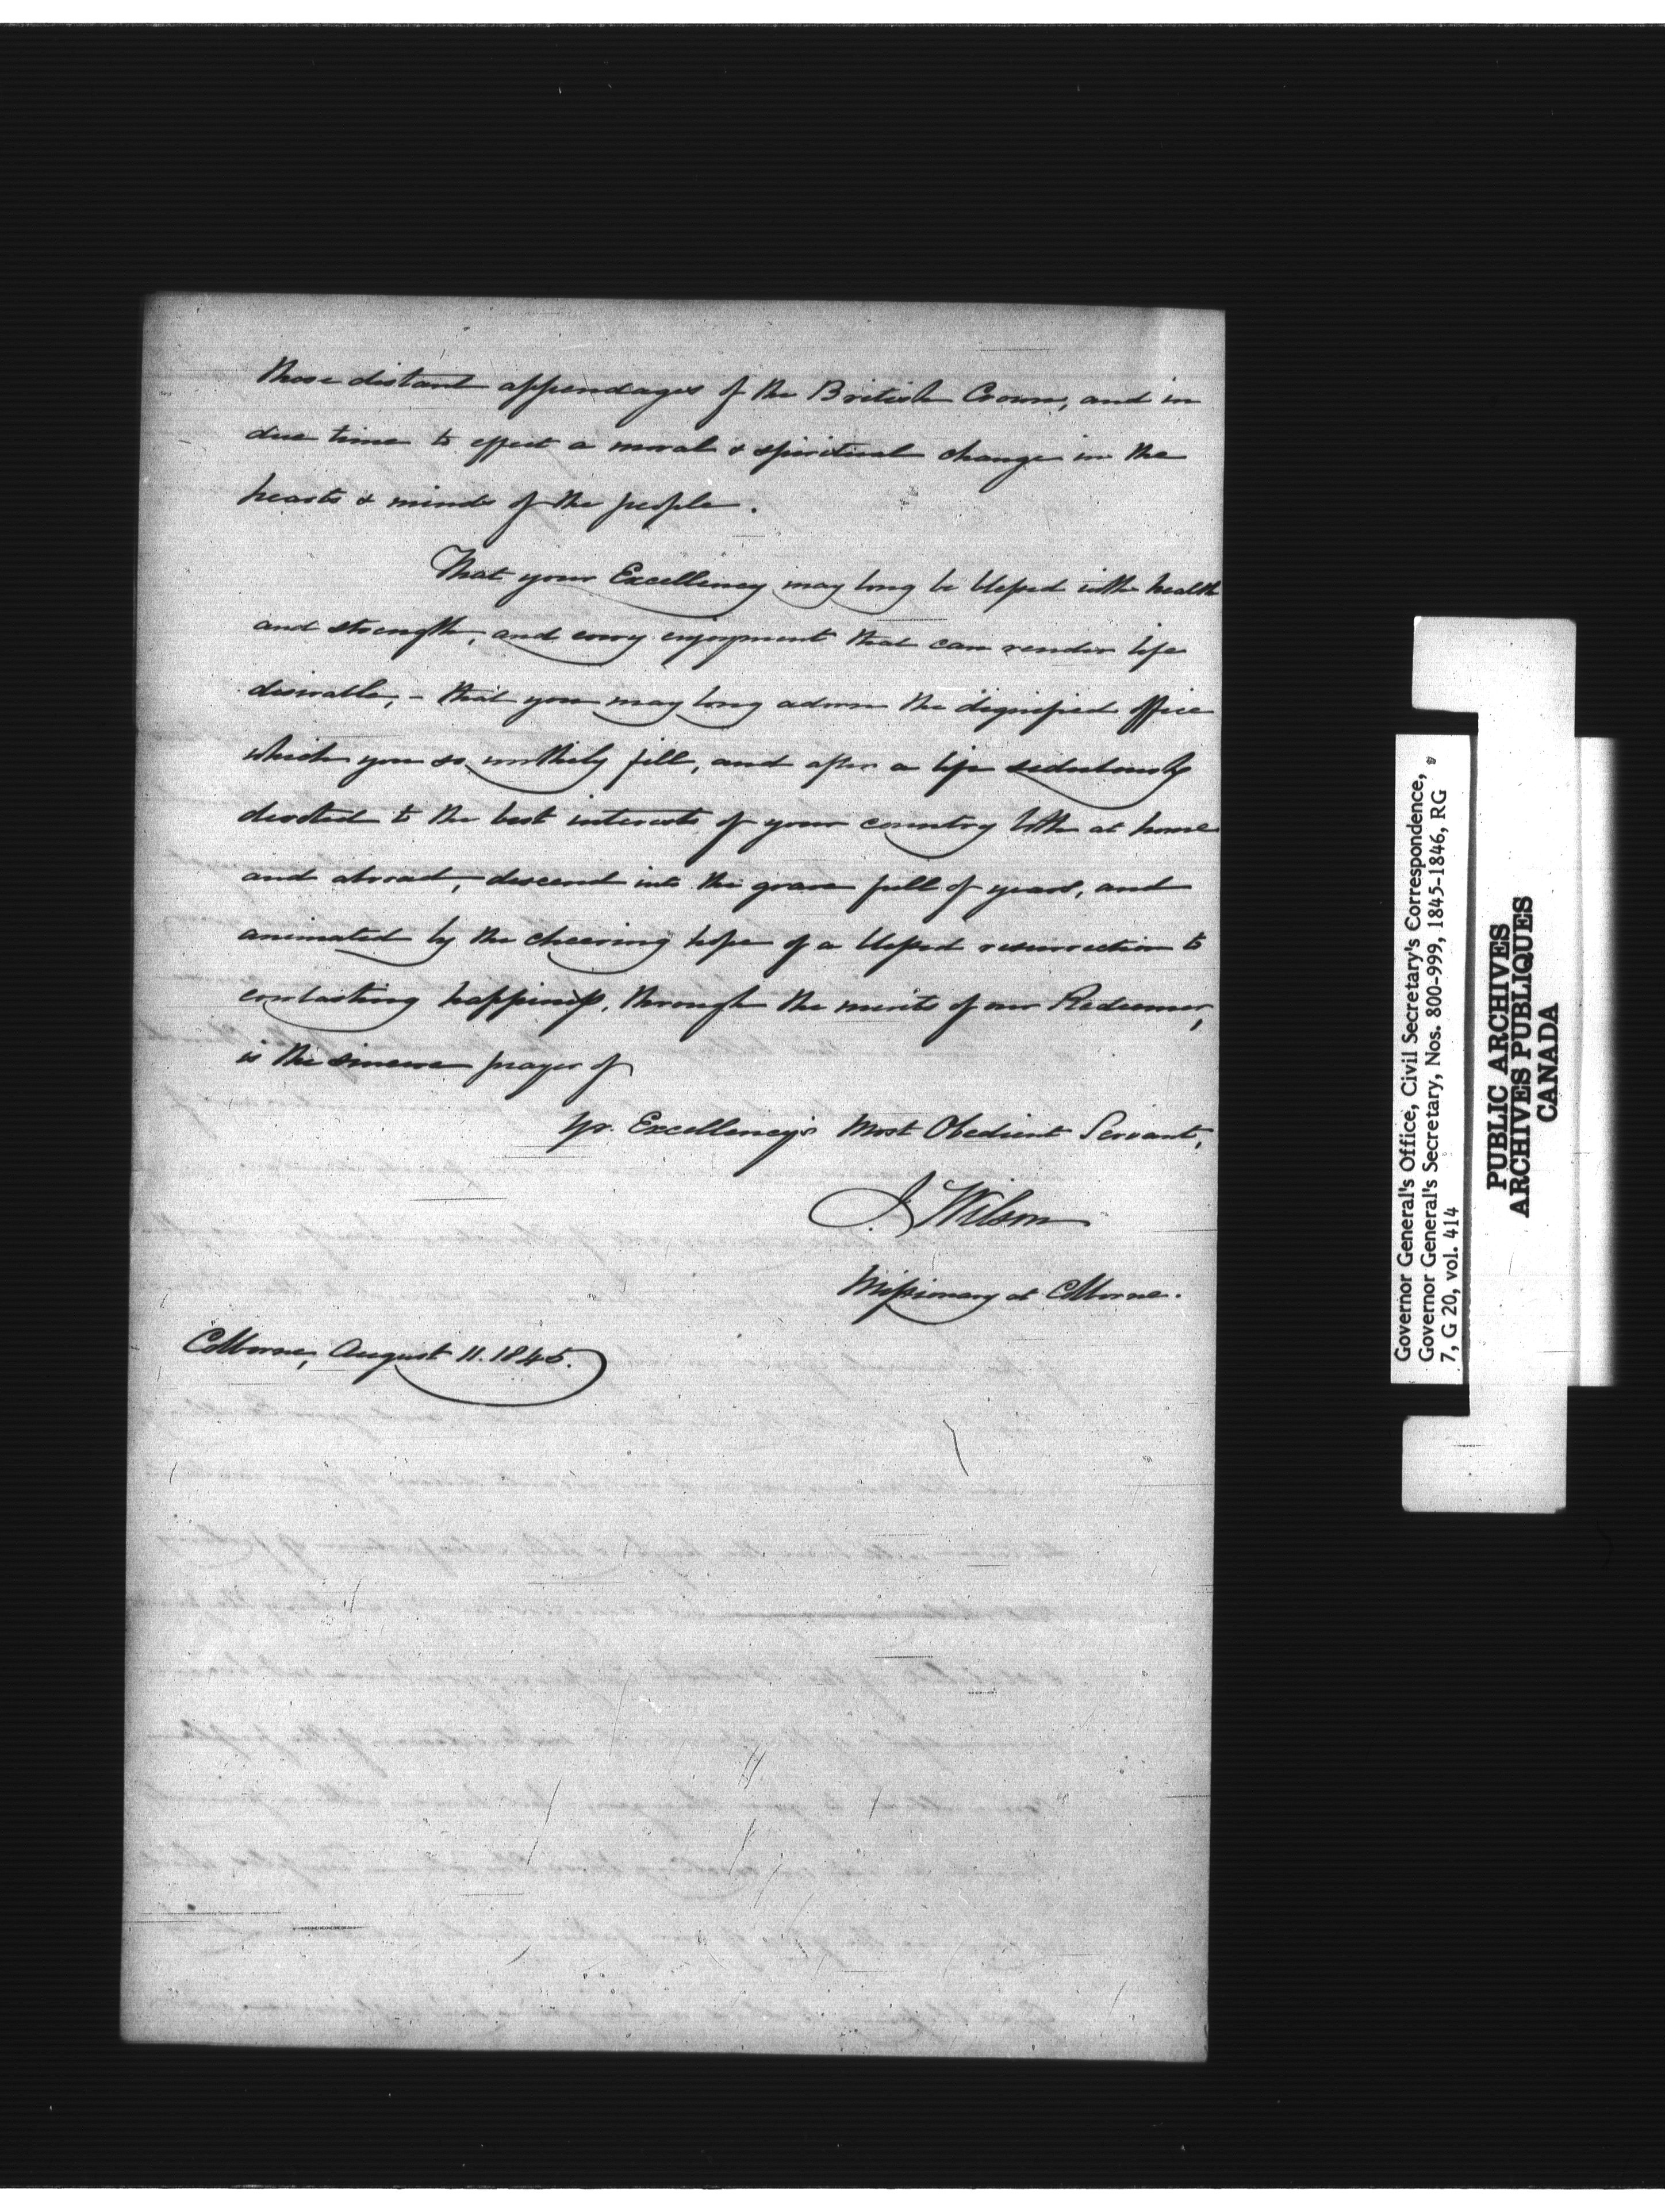 those distant appendages of the British Crown, and in
due time to effect a moral & spiritual change in the
hearts & minds of the people.
That your Excellency may long be blessed with health
and strength, and every enjoyment that can render life
desirable, - that you may long adorn the dignified office
which you so worthily fill, and after a life sedulously
devoted to the best interests of your country both at home
and abroad, descend into the grave full of years, and
animated by the cheering hope of a blessed resurrection to
everlasting happiness, through the merits of our Redeemer,
is the sincere prayer of
Yr. Excellency's Most Obedient Servant,
J Wilson
Missionary at Colborne.
Colborne, August 11. 1845.
Governor General's Office, Civil Secretary's Correspondence,
Governor General's Secretary, Nos. 800-999, 1845-1846, RG
7, G 20, vol. 414
PUBLIC ARCHIVES
ARCHIVES PUBLIQUES
CANADA